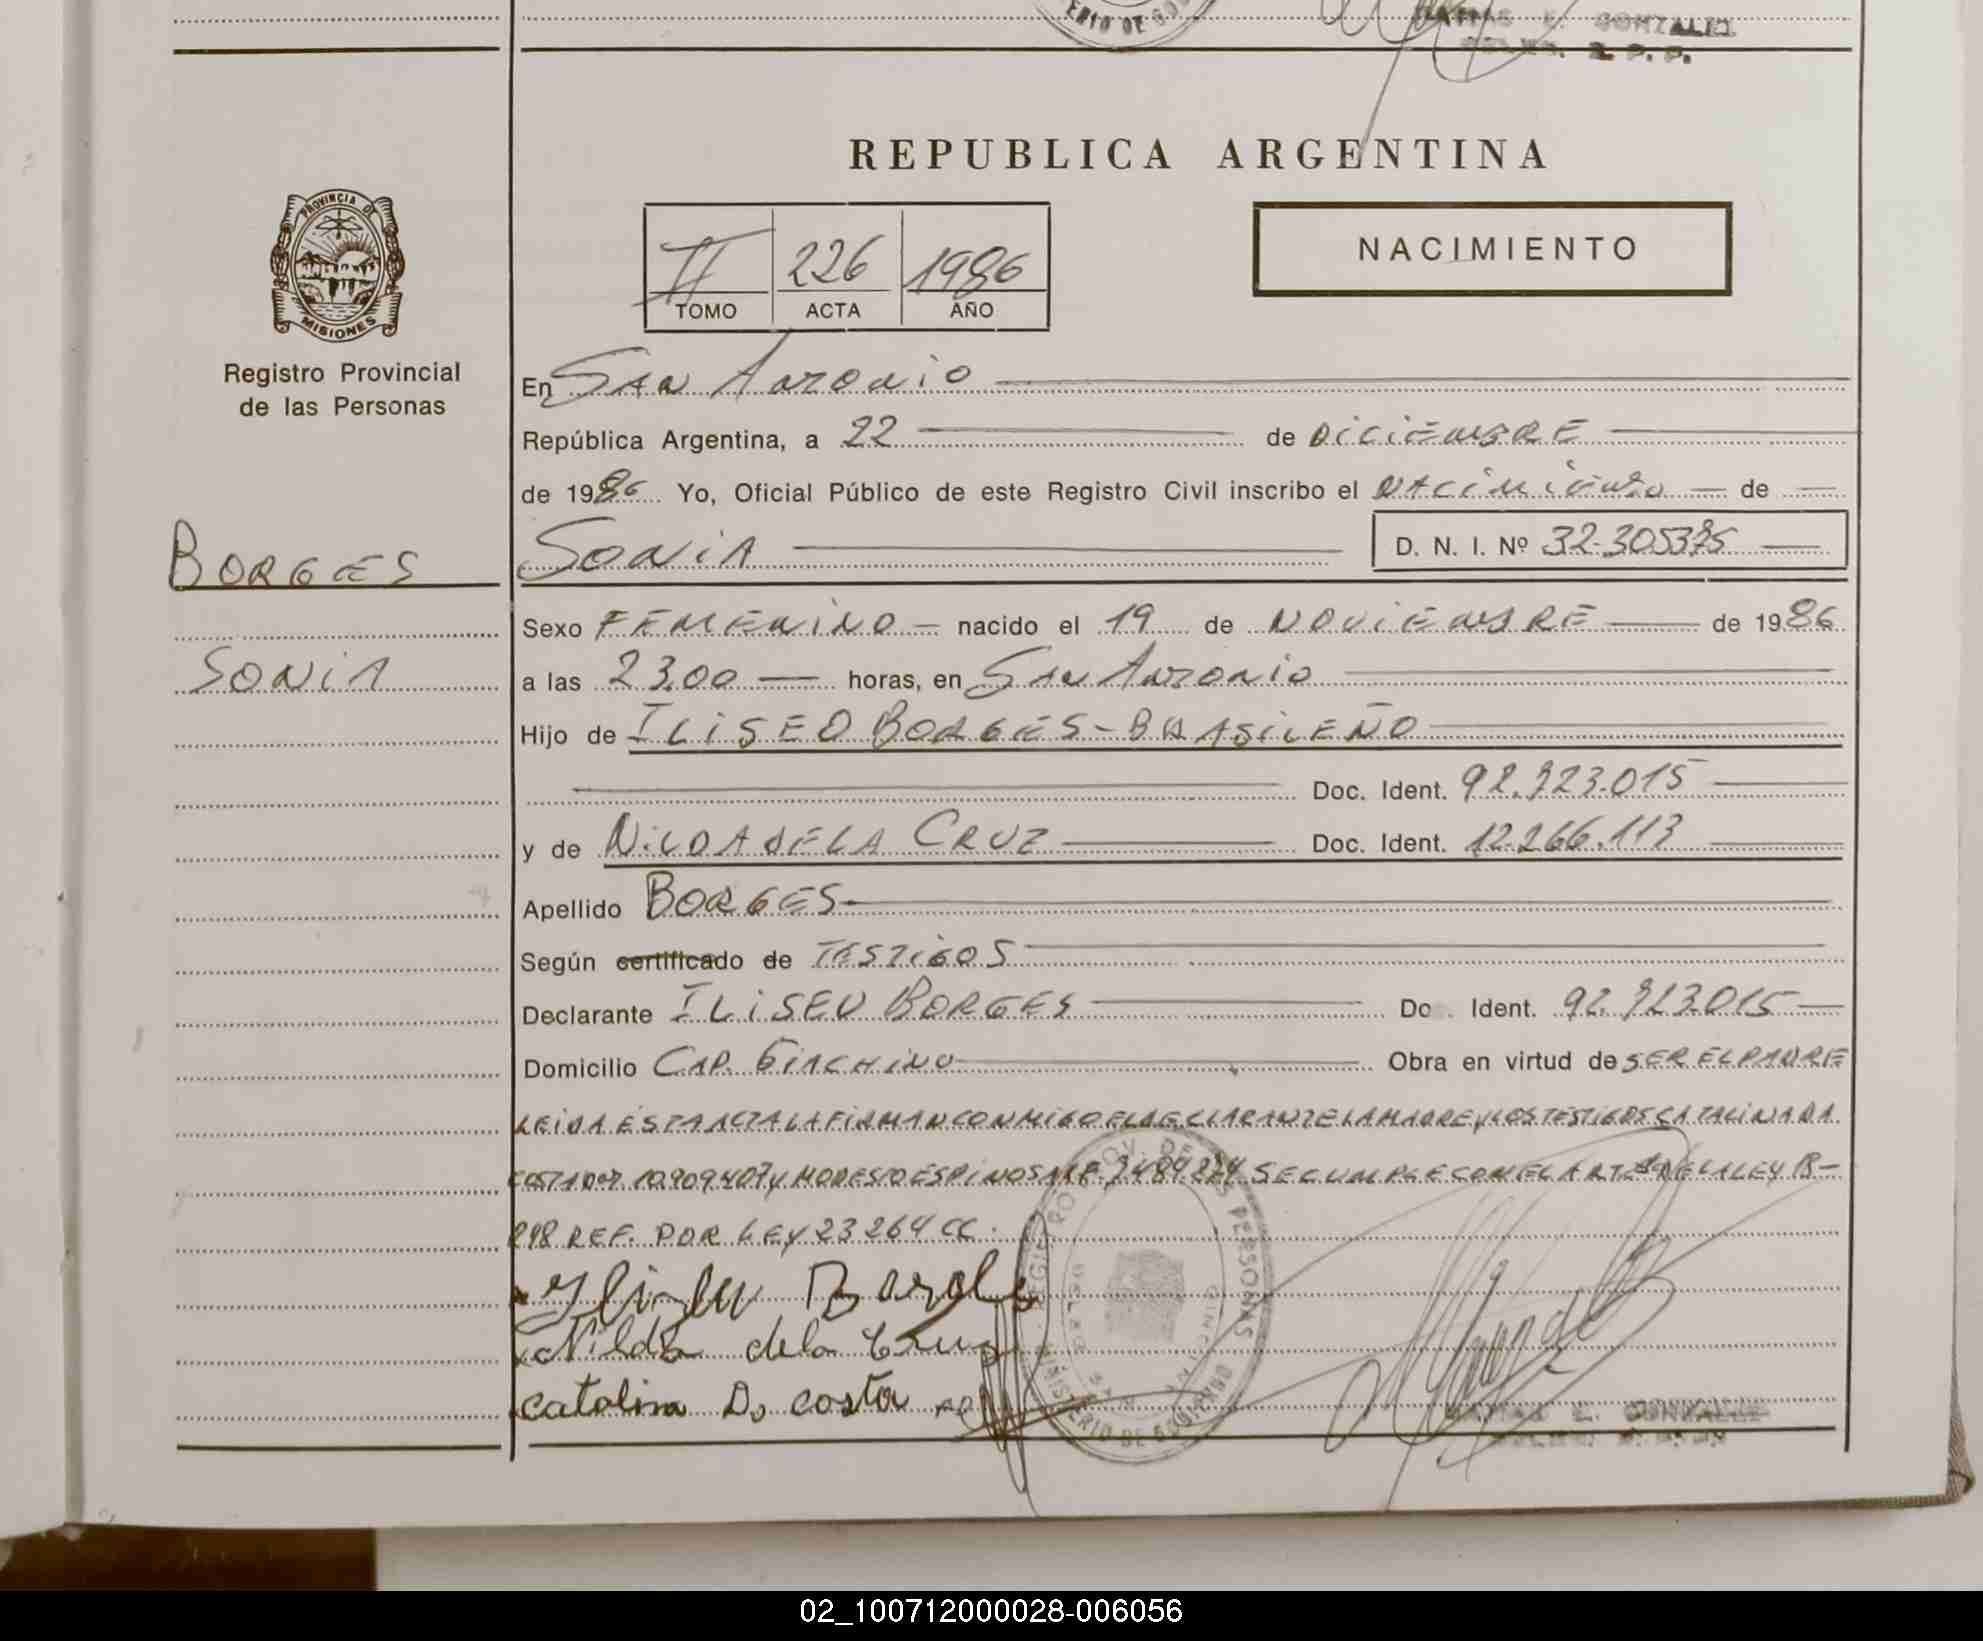 ERIO DE GO
MATIAS E. GONZALEZ
R. P. P.
REPUBLICA ARGENTINA
PROVINCIA DE
MISIONES
II 226 1986
TOMO ACTA AÑO
NACIMIENTO
Registro Provincial
de las Personas
En San Antonio
República Argentina, a 22 de Diciembre
de 1986 Yo, Oficial Público de este Registro Civil inscribo el Nacimiento de
BORGES
SONIA
SONIA D. N. I. Nº 32.305375
Sexo FEMENINO nacido el 19 de NOVIEMBRE de 1986
a las 23.00 horas, en San Antonio
Hijo de ILISEO BORGES - BRASILEÑO
Doc. Ident. 92.323.015
y de NILDA DE LA CRUZ Doc. Ident. 12.266.113
Apellido BORGES
Según certificado de TESTIGOS
Declarante ILISEU BORGES Do . Ident. 92.323.015
Domicilio CAP. GIACHINO Obra en virtud de SER EL PADRE
LEIDA ESTA ACTA LA FIRMAN CONMIGO EL DECLARANTE LA MADRE Y LOS TESTIGOS CATALINA DA
COSTA 10.909.407 y MODESTO ESPINOSA SE CUMPLE CON EL ART DE LA LEY 18-
248 REF. POR LEY 23264 CC.
Borges
Nilda dela Cruz
catalina D. costa
MINISTERIO DE GOBIERNO
PERSONAS
MATIAS E. GONZALEZ
02_100712000028-006056